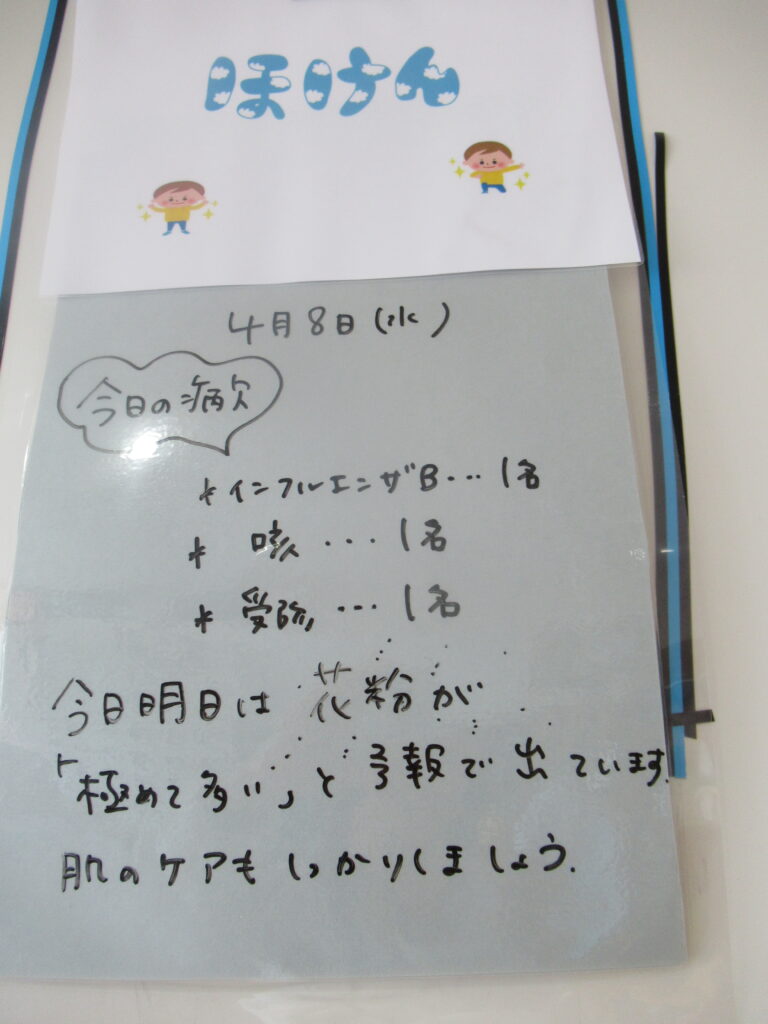 ほけん
4月8日(水)
今日の病欠
* インフルエンザB… 1名
* 咳 … 1名
* 受診 … 1名
今日明日は 花粉が
「極めて多い」と 予報で 出ています。
肌のケアも しっかりしましょう.